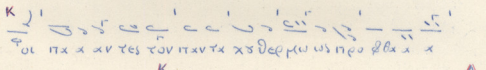 κ
οι πα α αν τες τον παντα χȣ θερμω ως προ φθα α α